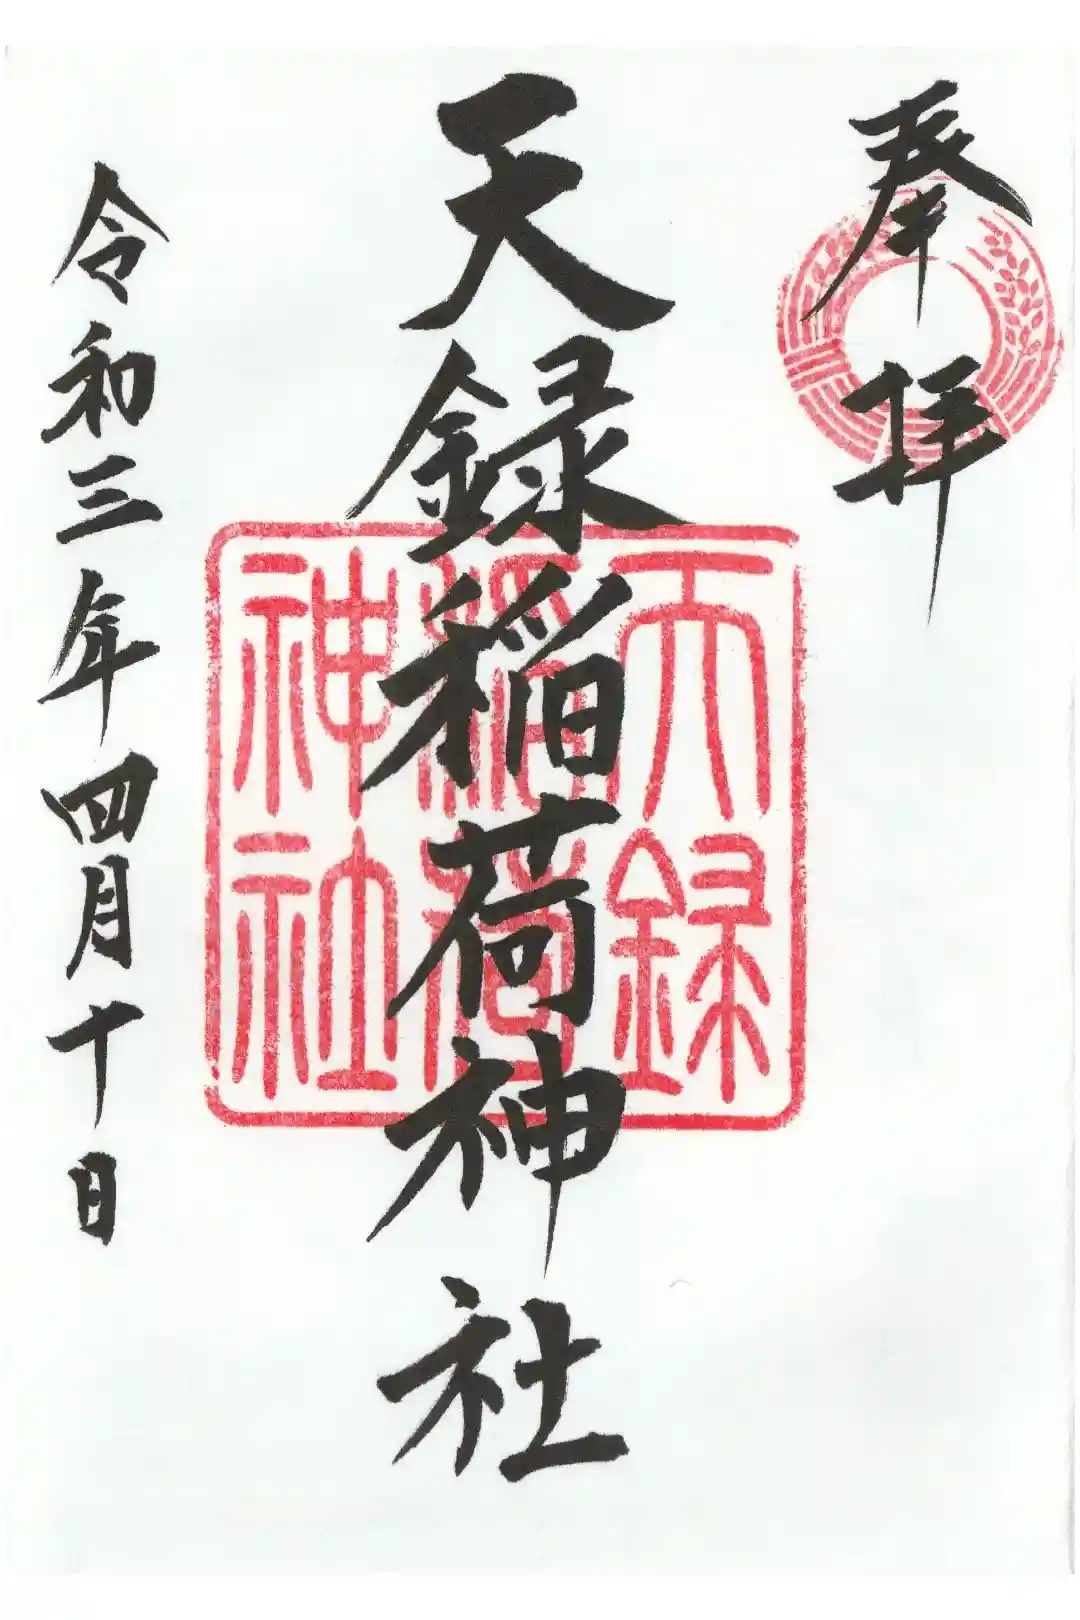 奉拝
天録稲荷神社
天録稲荷神社
令和三年四月十日